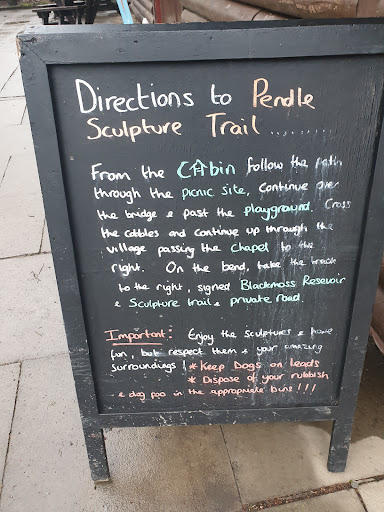 Directions to Pendle
Sculpture Trail ..........
From the CAbin follow the path
through the picnic site, continue over
the bridge & past the playground. Cross
the cobbles and continue up through the
village passing the chapel to the
right. On the bend, take the track
to the right, signed Blackmoss Resevoir
& Sculpture trail & private road.
Important: Enjoy the sculptures & have
fun, but respect them & your amazing
surroundings! * Keep Dogs on leads
* Dispose of your rubbish
& dog poo in the appropriate bins !!!!